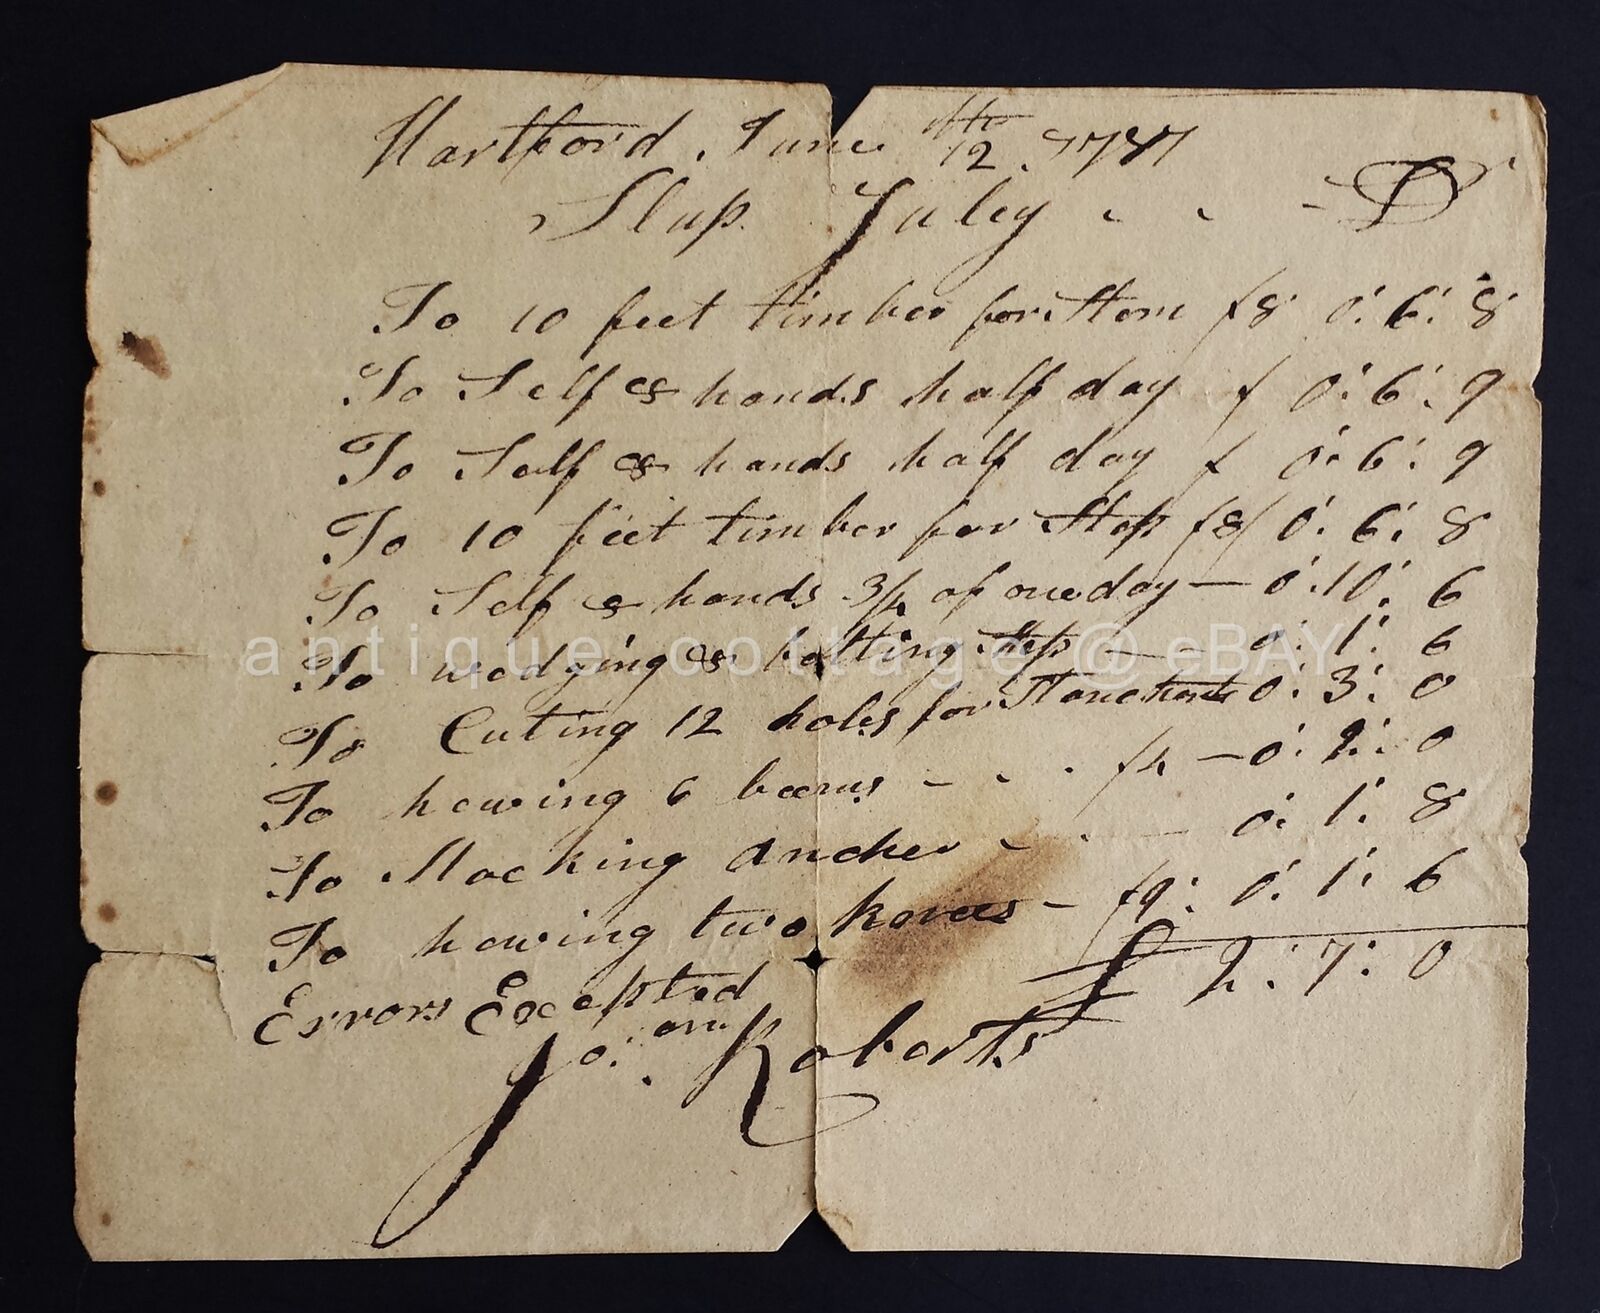 Hartford, June 12th 1787
Slup July - - - Dr
To 10 feet timber for Stem f8 0:6:8
To Self & hands half day f 0:6:9
To Self & hands half day f 0:6:9
To 10 feet timber for Step f8/ 0:6:8
To Self & hands 3/4 of one day — 0:10:6
To wedging & bolting Step — 0:1:6
To Cuting 12 holes for Stanchons 0:3:0
To hewing 6 beems - - - f4 — 0:2:0
To Stocking Ancher - - — 0:1:8
To hewing two knees — f9: 0:1:6
Errors Excepted £ 2:7:0
Roberts
antique cottage @ eBAY